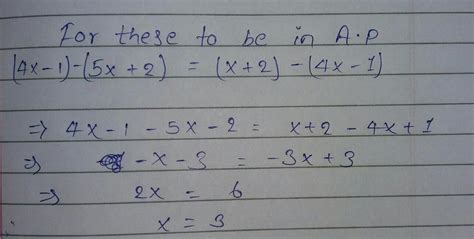 For these to be in A.P
(4x-1)-(5x+2) = (x+2)-(4x-1)
⇒ 4x-1-5x-2 = x+2-4x+1
⇒ -x-3 = -3x+3
⇒ 2x = 6
x = 3